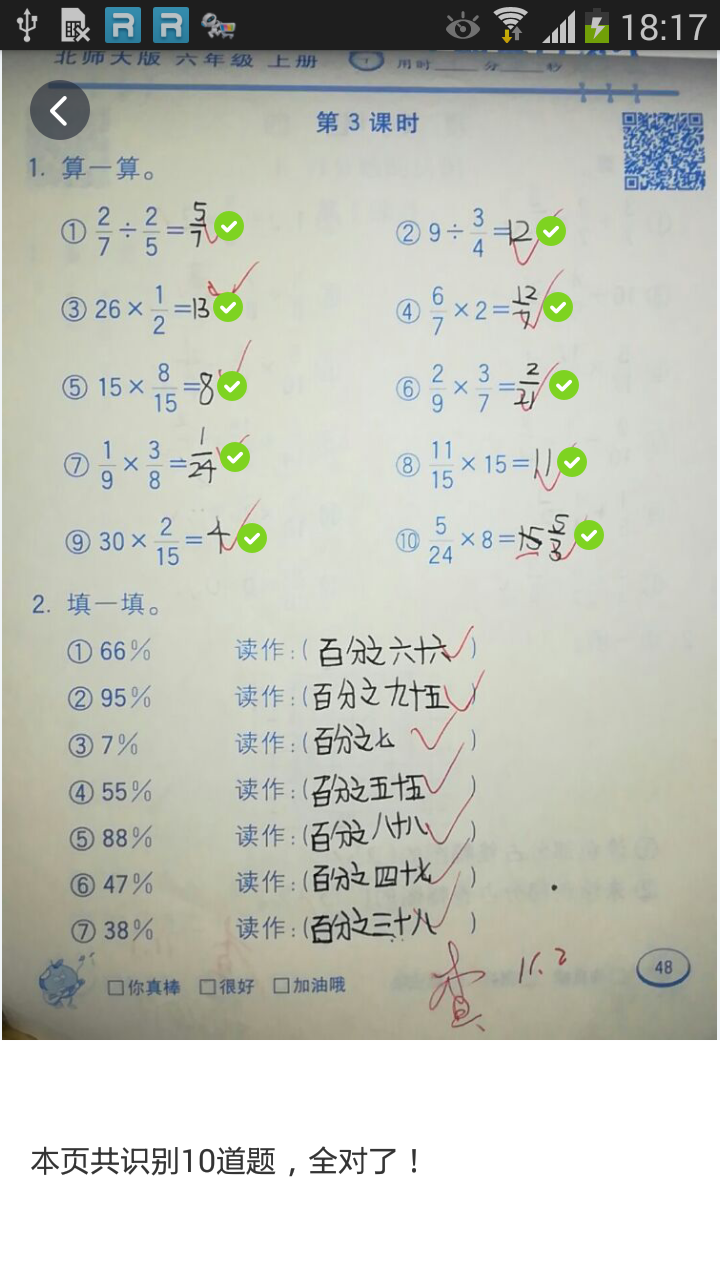 18:17
北师大版 六年级 上册 用时 分 秒
第3课时
1. 算一算。
① 2/7 ÷ 2/5 = 5/7
② 9 ÷ 3/4 = 12
③ 26 × 1/2 = 13
④ 6/7 × 2 = 12/7
⑤ 15 × 8/15 = 8
⑥ 2/9 × 3/7 = 2/21
⑦ 1/9 × 3/8 = 1/24
⑧ 11/15 × 15 = 11
⑨ 30 × 2/15 = 4
⑩ 5/24 × 8 = 5/3
2. 填一填。
① 66% 读作:(百分之六十六)
② 95% 读作:(百分之九十五)
③ 7% 读作:(百分之七)
④ 55% 读作:(百分之五十五)
⑤ 88% 读作:(百分之八十八)
⑥ 47% 读作:(百分之四十七)
⑦ 38% 读作:(百分之三十八)
□你真棒 □很好 □加油哦
查 11.2
48
本页共识别10道题，全对了！